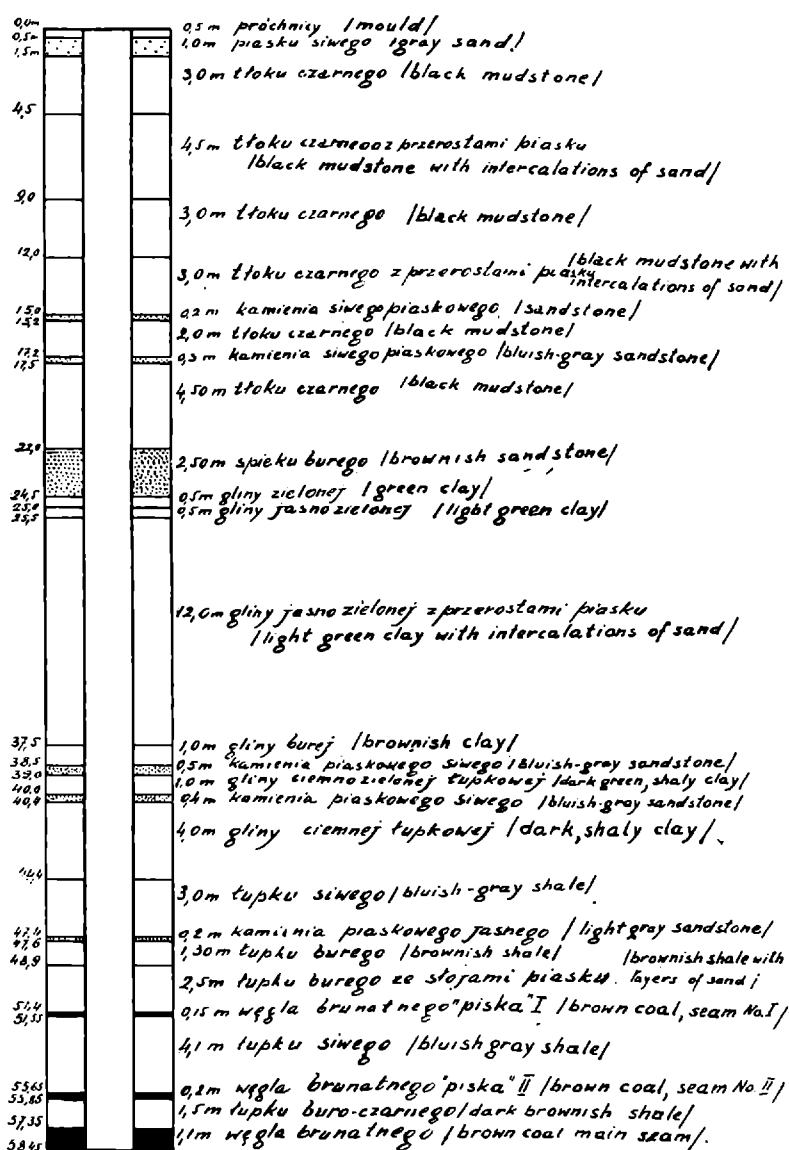 0,0m
0,5m próchnicy /mould/
0,5m
1,0m piasku siwego /gray sand/
1,5m
3,0m tłoku czarnego /black mudstone/
4,5
4,5m tłoku czarnego z przerostami piasku
/black mudstone with intercalations of sand/
9,0
3,0m tłoku czarnego /black mudstone/
12,0
3,0m tłoku czarnego z przerostami piasku /black mudstone with
intercalations of sand/
15,0
0,2m kamienia siwego piaskowego /sandstone/
15,2
2,0m tłoku czarnego /black mudstone/
17,2
0,3m kamienia siwego piaskowego /bluish-gray sandstone/
17,5
4,50m tłoku czarnego /black mudstone/
22,0
2,50m spieku burego /brownish sandstone/
24,5
0,5m gliny zielonej /green clay/
25,0
0,5m gliny jasno zielonej /light green clay/
25,5
12,0m gliny jasno zielonej z przerostami piasku
/light green clay with intercalations of sand/
37,5
1,0m gliny burej /brownish clay/
38,5
0,5m kamienia piaskowego siwego /bluish-gray sandstone/
39,0
1,0m gliny ciemno zielonej łupkowej /dark green, shaly clay/
40,0
0,4m kamienia piaskowego siwego /bluish-gray sandstone/
40,4
4,0m gliny ciemnej łupkowej /dark, shaly clay/.
44,4
3,0m łupku siwego /bluish-gray shale/
47,4
0,2m kamienia piaskowego jasnego /light gray sandstone/
47,6
1,30m łupku burego /brownish shale/
48,9
2,5m łupku burego ze słojami piasku. /brownish shale with
layers of sand/
51,4
0,15m węgla brunatnego "piska" I /brown coal, seam No. I/
51,55
4,1m łupku siwego /bluish gray shale/
55,65
0,2m węgla brunatnego "piska" II /brown coal, seam No. II/
55,85
1,5m łupku buro-czarnego /dark brownish shale/
57,35
1,1m węgla brunatnego /brown coal main seam/.
58,45